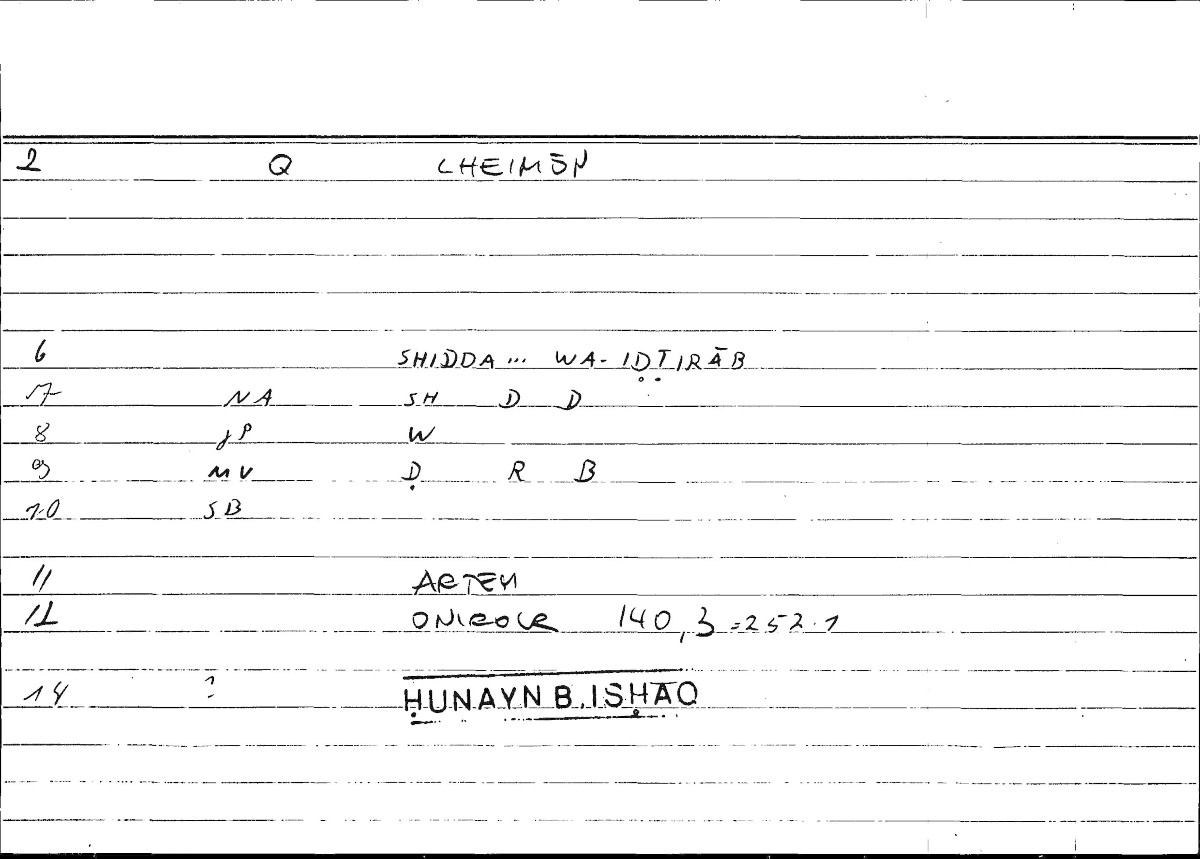 2 Q CHEIMŌN
6 SHIDDA... WA-IḌṬIRĀB
7 NA SH D D
8 JP W
9 MV Ḍ R B
10 SB
11 ARTEM
12 ONIROCR 140,3=252.1
14 ? ḤUNAYN B. ISḤĀQ